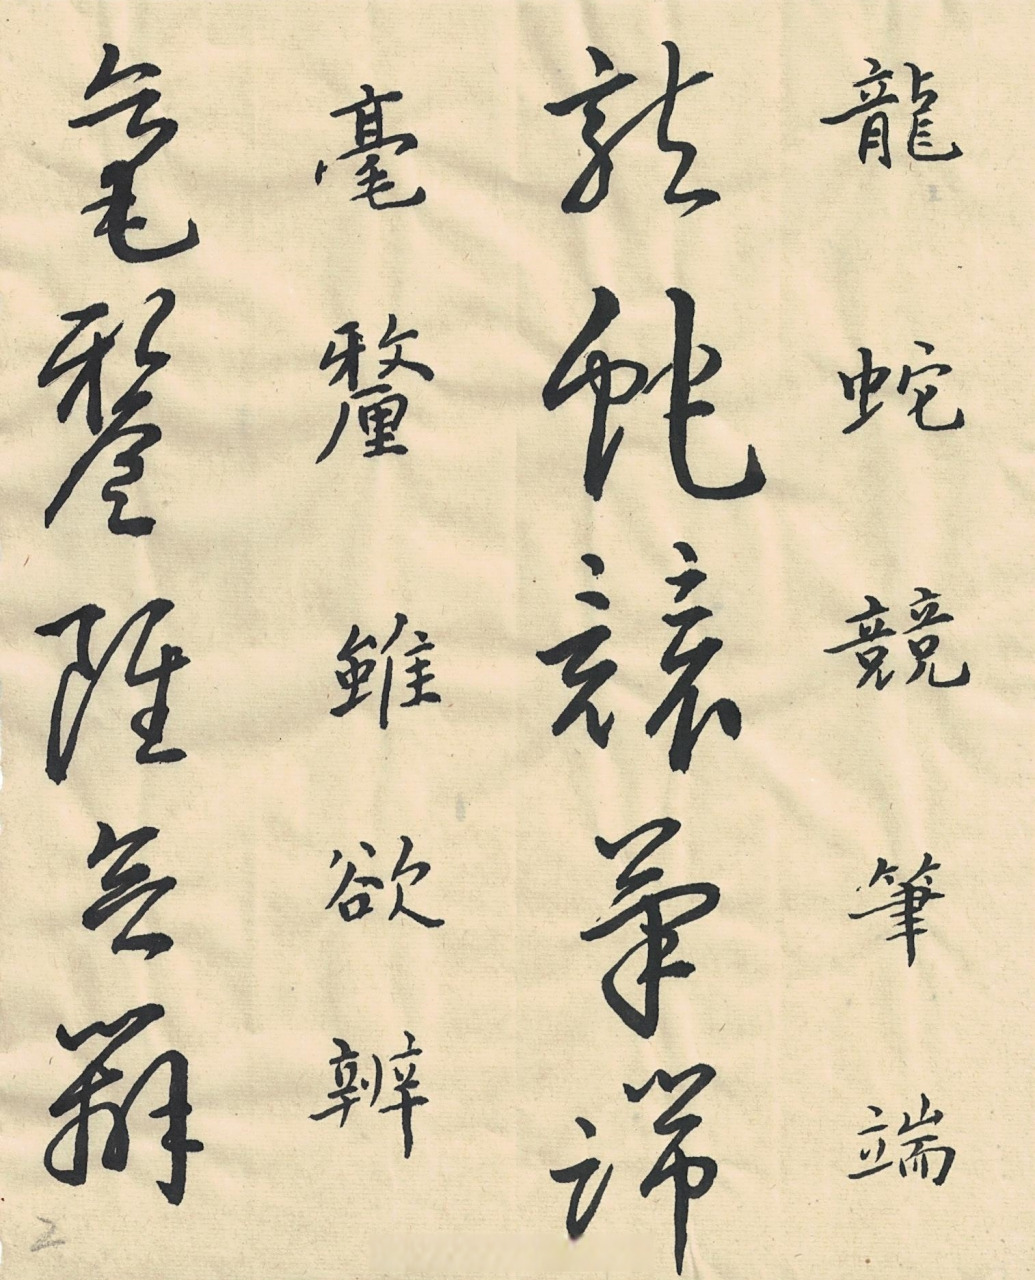 龍蛇競筆端
龍蛇競筆端
毫釐雖欲辨
毫釐雖欲辨
2